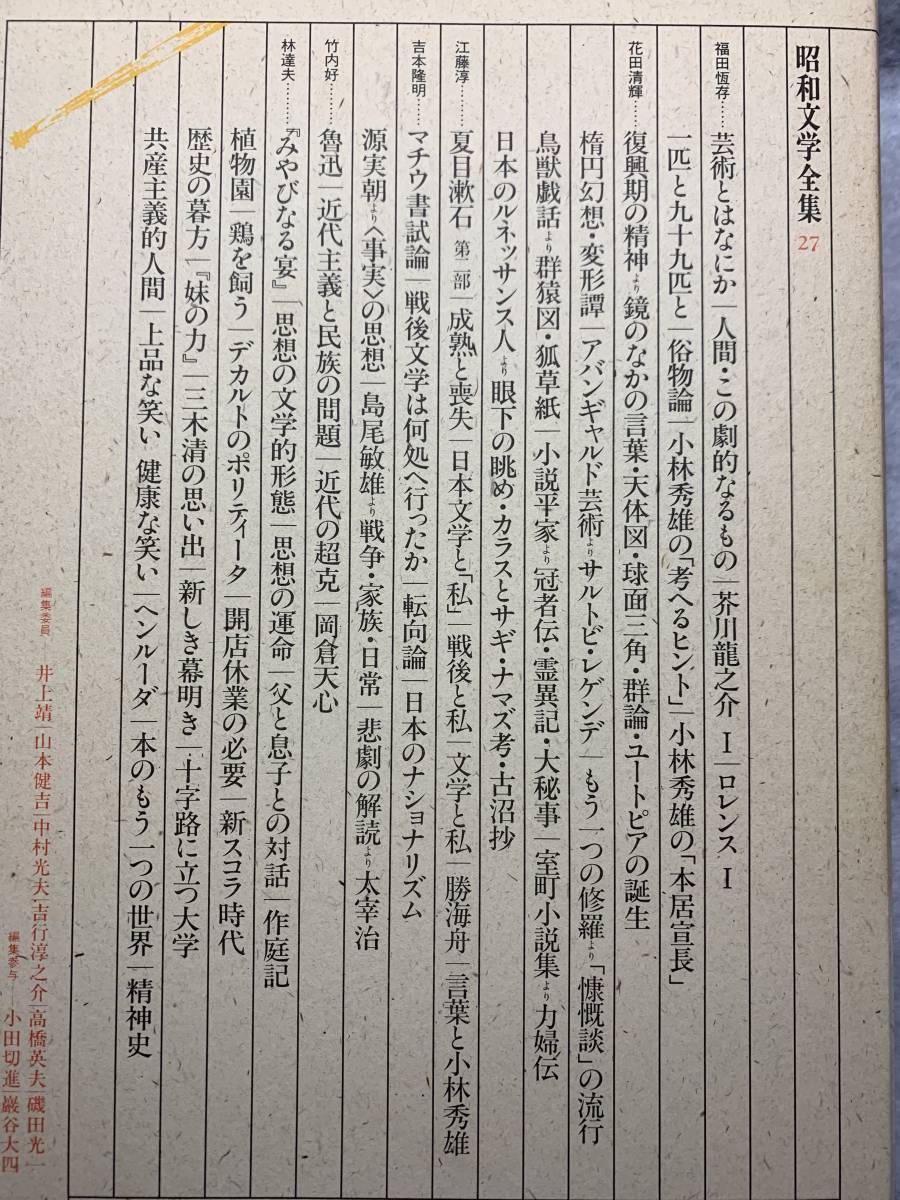 昭和文学全集 27
福田恆存………芸術とはなにか｜人間・この劇的なるもの｜芥川龍之介 Ⅰ｜ロレンス Ⅰ
一匹と九十九匹と｜俗物論｜小林秀雄の「考へるヒント」｜小林秀雄の「本居宣長」
花田清輝………復興期の精神より 鏡のなかの言葉・天体図・球面三角・群論・ユートピアの誕生
楕円幻想・変形譚｜アバンギャルド芸術より サルトビ・レゲンデ｜もう一つの修羅より 「慷慨談」の流行
鳥獣戯話より 群猿図・狐草紙｜小説平家より 冠者伝・霊異記・大秘事｜室町小説集より 力婦伝
日本のルネッサンス人より 眼下の眺め・カラスとサギ・ナマズ考・古沼抄
江藤淳………夏目漱石 第二部｜成熟と喪失｜日本文学と「私」｜戦後と私｜文学と私｜勝海舟｜言葉と小林秀雄
吉本隆明………マチウ書試論｜戦後文学は何処へ行ったか｜転向論｜日本のナショナリズム
源実朝より 〈事実〉の思想｜島尾敏雄より 戦争・家族・日常｜悲劇の解読より 太宰治
竹内好………魯迅｜近代主義と民族の問題｜近代の超克｜岡倉天心
林達夫………『みやびなる宴』｜思想の文学的形態｜思想の運命｜父と息子との対話｜作庭記
植物園｜鶏を飼う｜デカルトのポリティーク｜開店休業の必要｜新スコラ時代
歴史の暮方｜『妹の力』｜三木清の思い出｜新しき幕明き｜十字路に立つ大学
共産主義的人間｜上品な笑い 健康な笑い｜ヘンルーダ｜本のもう一つの世界｜精神史
編集委員──井上靖｜山本健吉｜中村光夫｜吉行淳之介｜高橋英夫｜磯田光一
編集参与──小田切進｜巌谷大四